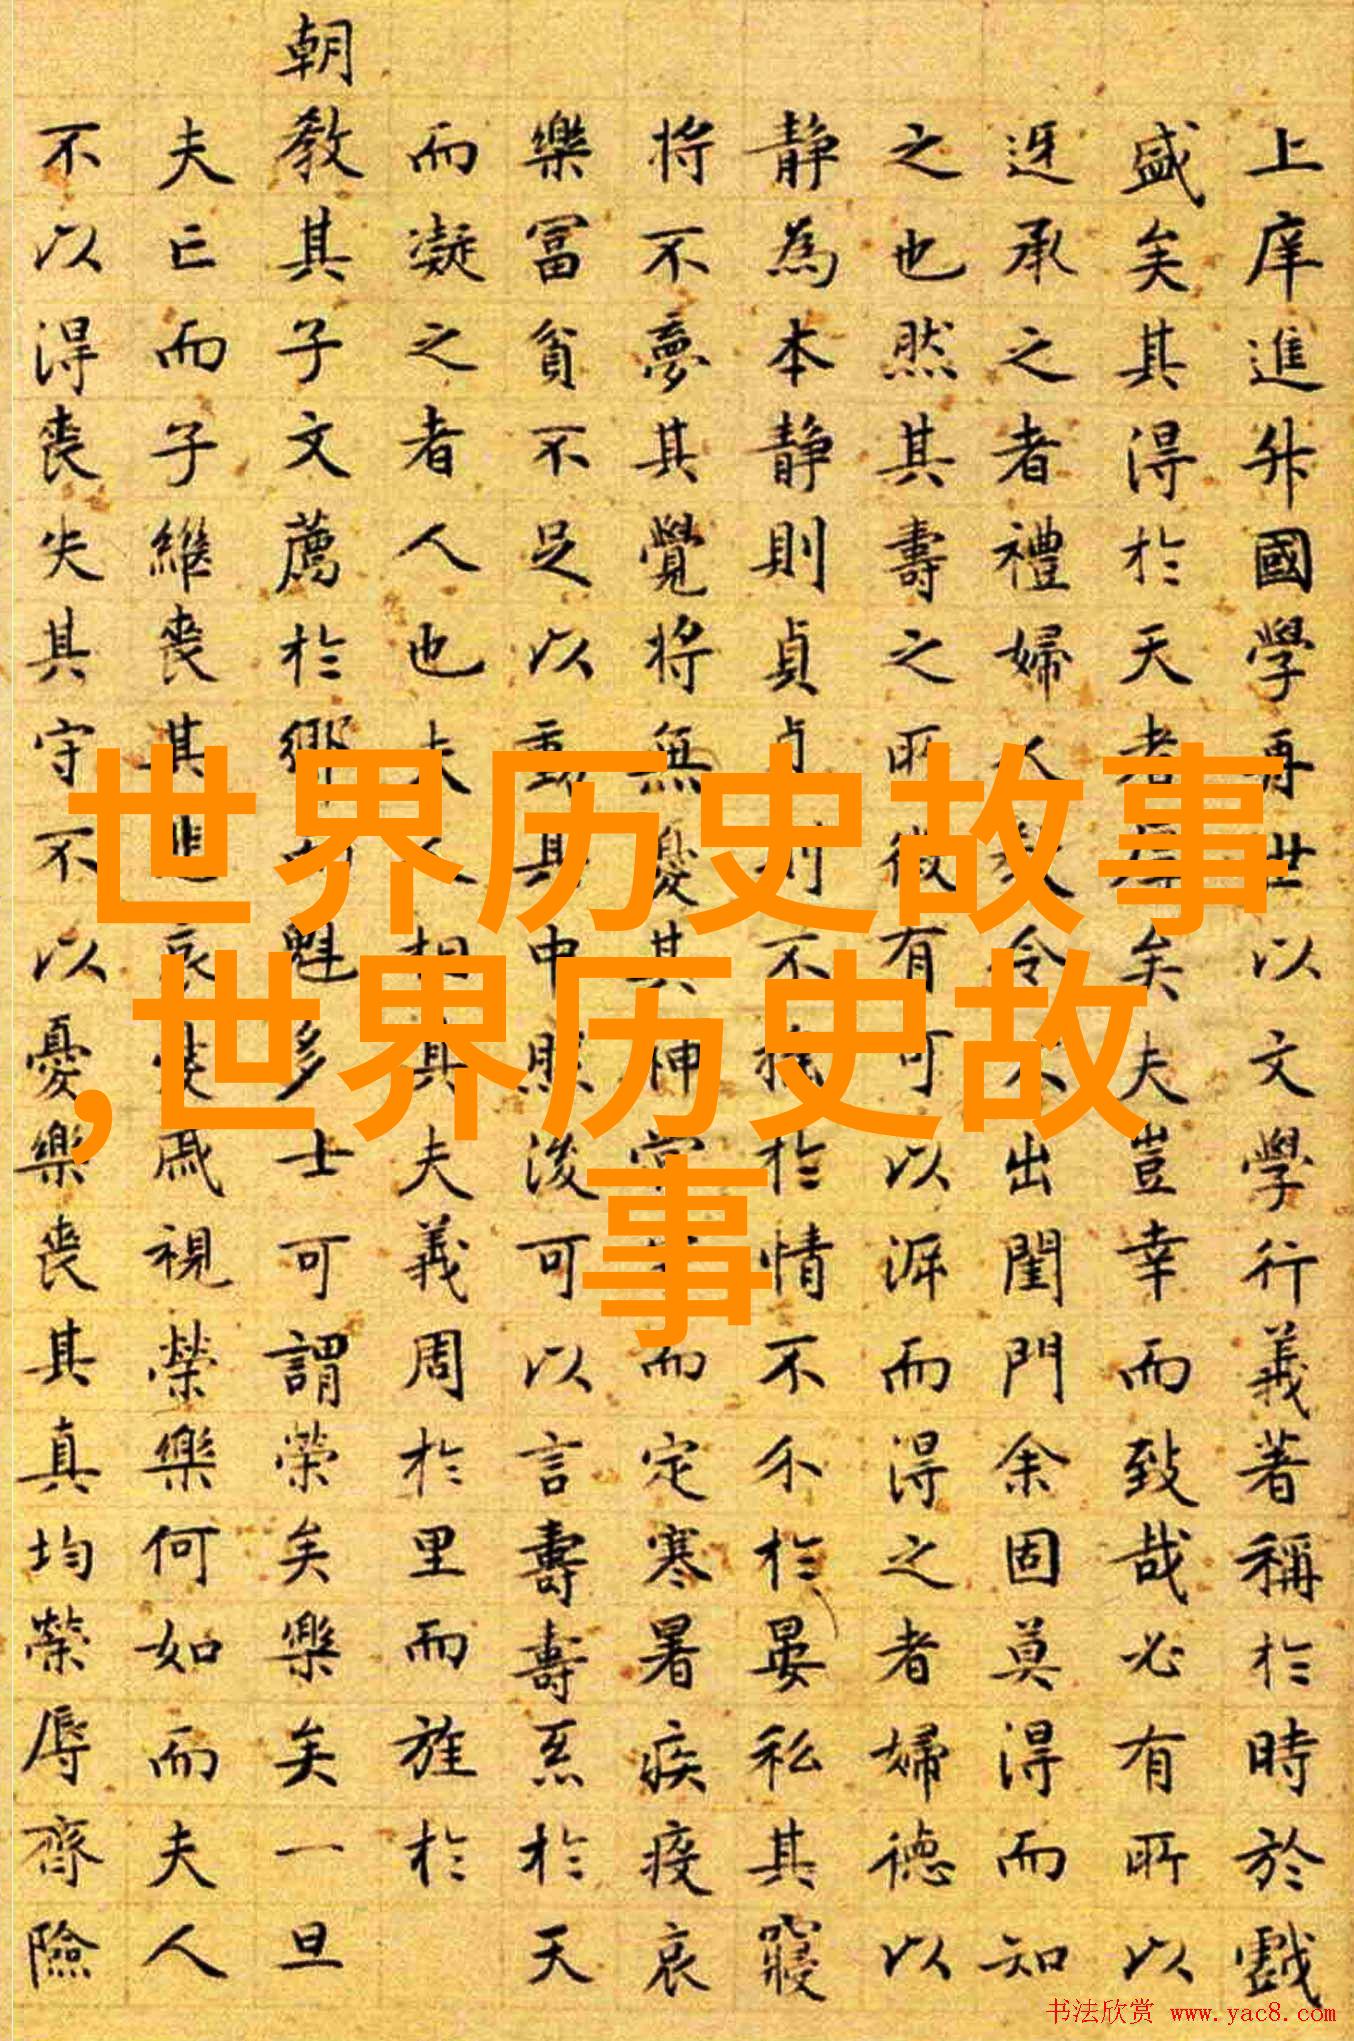 上庠進升國學再世以文學行義著稱於時於戲
盛矣其得於天者厚矣夫豈幸而致哉必有所以
迓承之者禮婦人教令不出閨門余固莫得而知
之也然其壽之所徵有可以涯而得之者婦德以
靜為本靜則貞貞則不搖於情不介於晏私其寢
将不夢其覺将無憂其神常而定寒暑疾疫哀
樂冨貧不足以動其中照可以言壽壽系於天
而凝之者人也夫人相其夫義周於里而旌於
朝教其子文薦於鄉而魁多士可謂榮矣樂矣一旦
夫亡而子繼喪其悲哀憂戚視榮樂何如而夫人
不以得喪失其守不以憂樂喪其真均榮辱齊險
世界历史故事
,世界历史故
事
书法欣赏 www.yac8.com